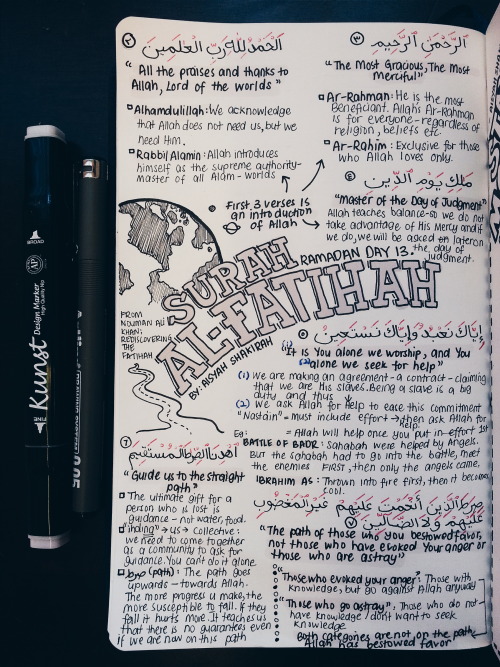 ٢ الحمد لله رب العلمين
" All the praises and thanks to
Allah, Lord of the worlds "
Alhamdulillah: We acknowledge
that Allah does not need us, but we
need Him.
Rabbil Alamin: Allah introduces
himself as the supreme authority-
master of all Alam- worlds
٣ الرحمن الرحيم
"The Most Gracious, The Most
Merciful"
Ar-Rahman: He is the most
Beneficient. Allah's Ar-Rahman
is for everyone - regardless of
religion, beliefs etc.
Ar-Rahim: Exclusive for those
who Allah loves only.
ملك يوم الدين
"Master of the Day of Judgment"
Allah teaches balance - so we do not
take advantage of His Mercy and if
we do, we will be asked on later on
the day of
judgment.
First 3 verses is
an introduction
of Allah
RAMADAN DAY 13.
SURAH
AL-FATIHAH
BY: AISYAH SHAKIRAH
FROM
NOUMAN ALI
KHAN:
REDISCOVERING
THE
FATIHAH
إياك نعبد وإياك نستعين
(1)
"It is You alone we worship, and You
(2) alone we seek for help"
(1) We are making an agreement - a contract - claiming
that we are his slaves. Being a slave is a big
duty and thus
(2) We ask Allah for Help to ease this commitment
"Nastain" = Must include effort → then ask Allah for
help.
Eg: = Allah will help once you put in effort 1st
BATTLE OF BADR: Sahabah were helped by Angels.
But the sahabah had to go into the battle, meet
the enemies FIRST, then only the angels came.
IBRAHIM AS: Thrown into fire first, then it became
cool.
٦ اهدنا الصراط المستقيم
"Guide us to the straight
path"
The ultimate gift for a
person who is lost is
guidance - not water, food.
"ihdina" → us → Collective:
we need to come together
as a community to ask for
guidance. You can't do it alone.
صرط (path): The path goes
upwards - towards Allah.
The more progress u make, the
more susceptible to fall. If they
fall it hurts more. It teaches us
that there is no guarantees even
if we are now on this path
صرط الذين أنعمت عليهم غير المغضوب
عليهم ولا الضالين ٧
"The path of those who you bestowed favor,
not those who have evoked Your anger or
those who are astray"
"Those who evoked your anger": Those with
knowledge, but go against Allah anyway
"Those who go astray": Those who do not
have knowledge / don't want to seek
knowledge
Both categories are not on the path
Allah has bestowed favor
BROAD
Kunst Design Marker
High Quality Ink
FINE
DRAWING SYSTEM 0.05